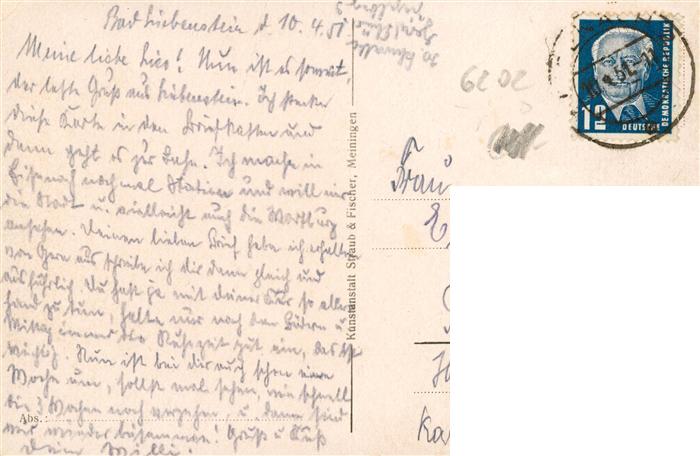 Bad Liebenstein d. 10.4.51
Meine liebe Liesl! Nun ist es soweit,
der letzte Gruß aus Liebenstein. Ich stecke
diese Karte in den Briefkasten und
dann geht es zur Bahn. Ich mache in
Eisenach noch mal Station und will mir
die Stadt u. vielleicht auch die Wartburg
ansehen. Deinen lieben Brief habe ich erhalten
von Gera aus schreibe ich dir dann gleich und
ausführlich. Du hast ja mit deiner Kur so aller-
hand zu tun, halte nur nach den Bädern u.
Mittag immer die Ruhezeit gut ein, das ist
wichtig. Nun ist bei dir auch schon eine
Woche um, sollst mal sehen, wie schnell
die 3 Wochen noch vergehen, u. dann sind
wir wieder beisammen! Gruß u Kuß
Dein Willi.
Abs.:
Kunstanstalt Straub & Fischer, Meiningen
6202
Frau
Ka
12
DEUTSCHE
DEMOKRATISCHE REPUBLIK